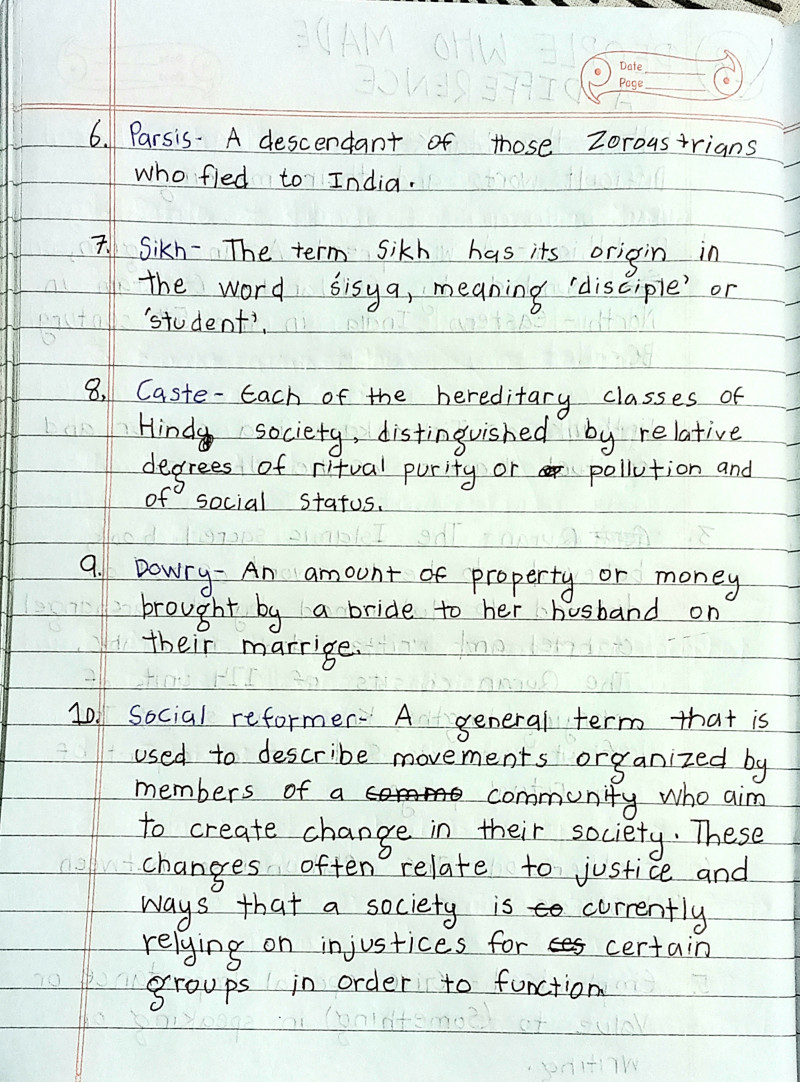 Date
Page
6. Parsis- A descendant of those Zoroastrians
who fled to India.
7. Sikh- The term Sikh has its origin in
the word śisya, meaning 'disciple' or
'student'.
8. Caste- Each of the hereditary classes of
Hindu society, distinguished by relative
degrees of ritual purity or pollution and
of social status.
9. Dowry- An amount of property or money
brought by a bride to her husband on
their marrige.
10. Social reformer- A general term that is
used to describe movements organized by
members of a commo community who aim
to create change in their society. These
changes often relate to justice and
ways that a society is co currently
relying on injustices for ces certain
groups in order to function